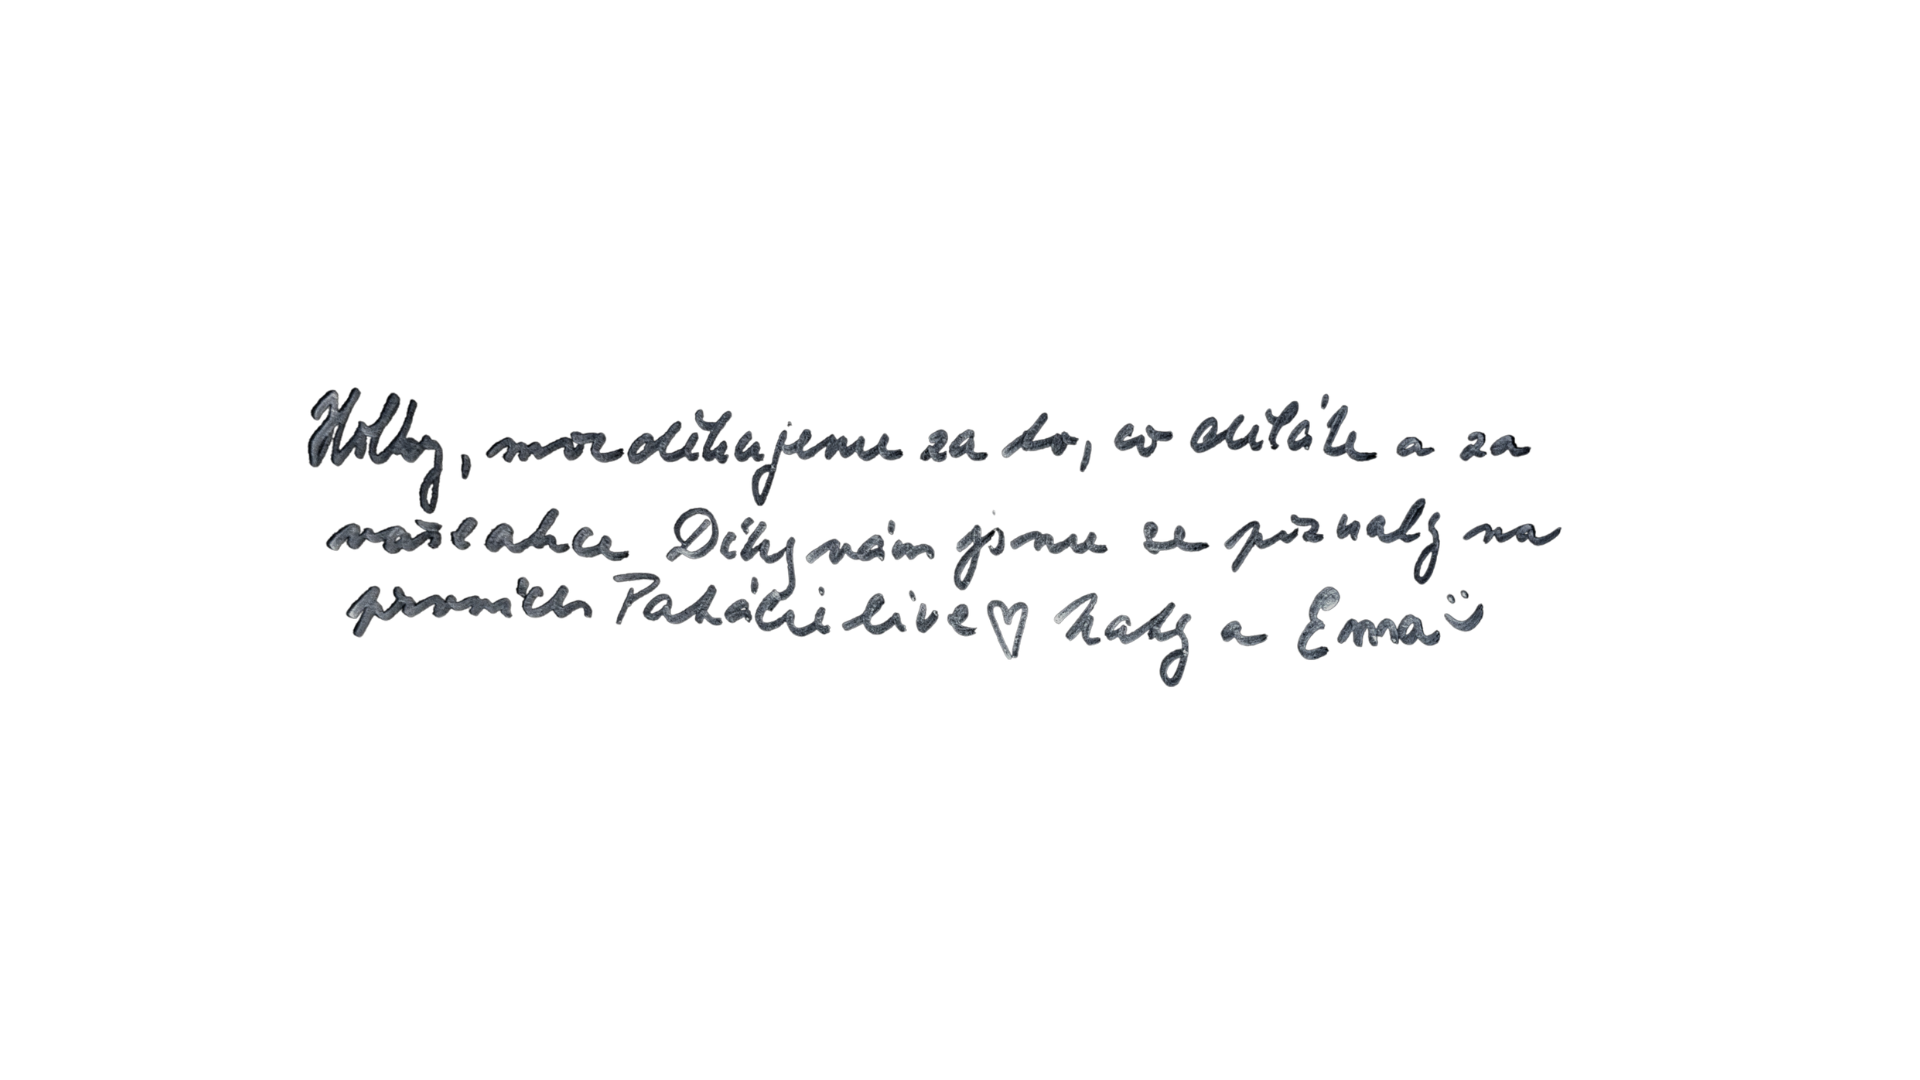 Holky, moc děkujeme za to, co děláte a za
vaše akce Díky vám jsme se poznaly na
prvních Pakáčié live♡ Katy a Ema